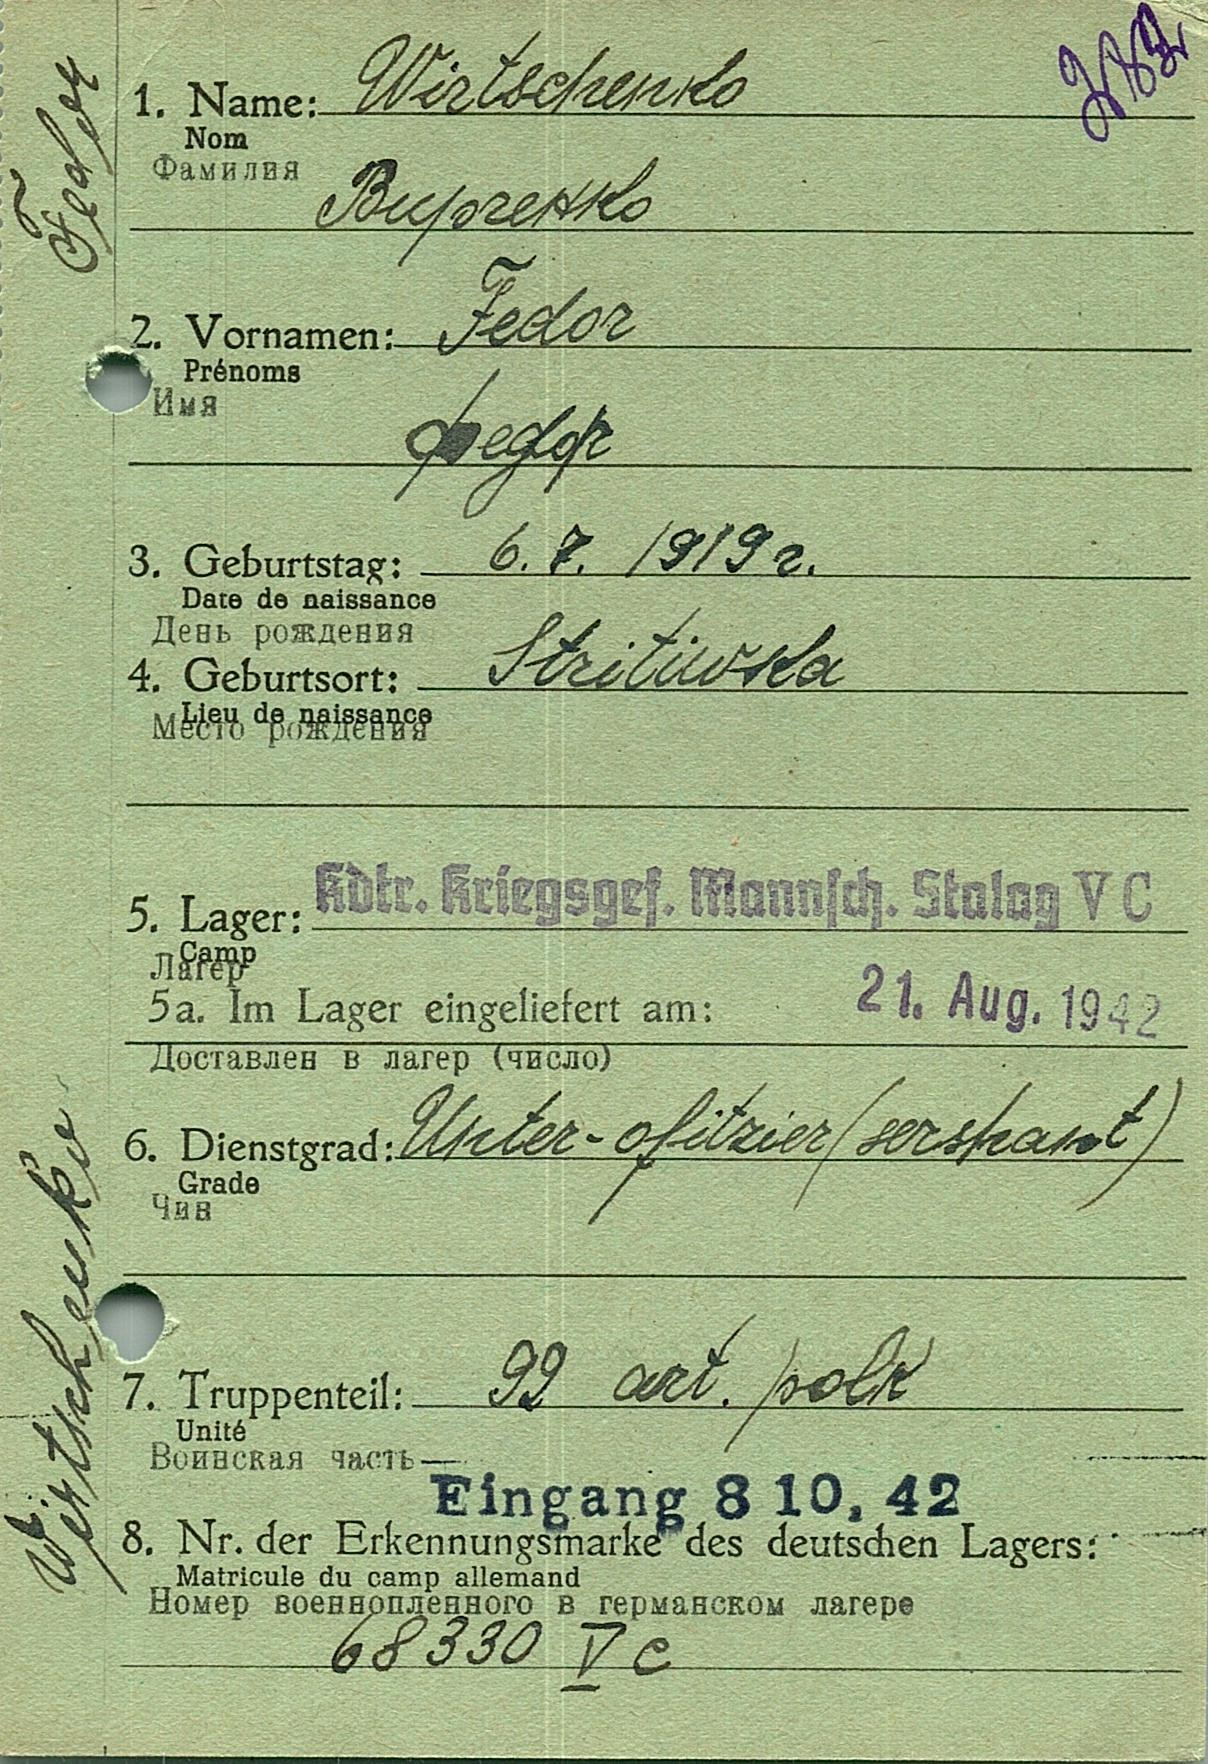 1. Name: Wirtschenko
Nom
Фамилия
Вирченко
2. Vornamen: Fedor
Prénoms
Имя
Федор
3. Geburtstag: 6. 7. 1919 г.
Date de naissance
День рождения
4. Geburtsort: Stritiwska
Lieu de naissance
Место рождения
5. Lager: Kdtr. Kriegsgef. Mannsch. Stalag V C
Camp
Лагерь
5a. Im Lager eingeliefert am: 21. Aug. 1942
Доставлен в лагер (число)
6. Dienstgrad: Unter-ofitzier (sershant)
Grade
Чин
7. Truppenteil: 99 art. polk
Unité
Воинская часть
Eingang 8 10. 42
8. Nr. der Erkennungsmarke des deutschen Lagers:
Matricule du camp allemand
Номер военнопленного в германском лагере
68330 V c
Wirtschenko
Fedor